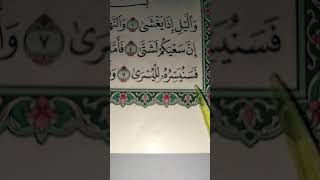 وَٱلَّيۡلِ إِذَا يَغۡشَىٰ ١
إِنَّ سَعۡيَكُمۡ لَشَتَّىٰ ٤ فَأَمَّا
فَسَنُيَسِّرُهُۥ لِلۡيُسۡرَىٰ ٧